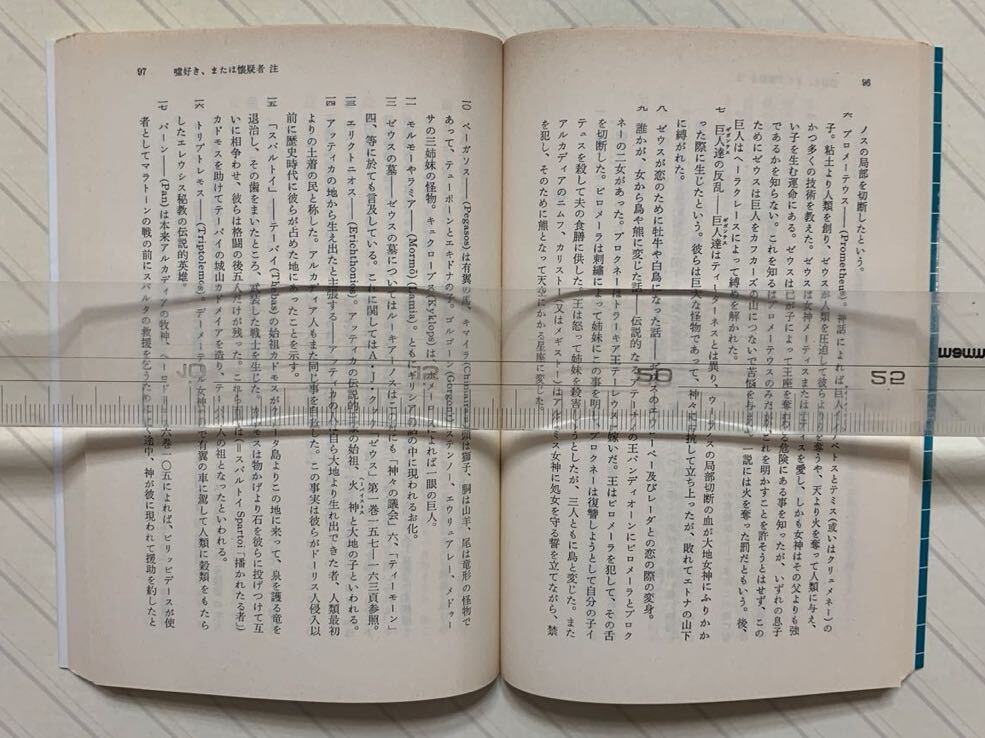 96
ノスの局部を切断したという。
六 プロメーテウス――(Prometheus)。神話によれば、巨人イアペトスとテミス(或いはクリュメネー)の
子。粘土より人類を創り、ゼウスが人類を圧迫して彼らより火を奪うや、天より火を奪って人類に与え、
かつ多くの技術を教えた。ゼウスは女神メーティスまたはテティスを愛し、しかも女神はその父よりも強
い子を生む運命にある。ゼウスは己が子によって王座を奪われる危険にある事を知ったが、いずれの息子
であるかを知らない。これを知るはプロメーテウスのみだが、これを明かすことを許そうとはせず、この
ためにゼウスは巨人をカフカーズの山につないで苦悩を与え 一説には火を奪った罰だともいう。後、
巨人はヘーラクレースによって縛めを解かれた。
七 巨人達の反乱――巨人達はティーターネスとは異り、ウーラノスの局部切断の血が大地女神にふりかか
った際に生じたという。彼らは巨大な怪物であって、神々に反抗して立ち上ったが、敗れてエトナの山下
に縛がれた。
八 ゼウスが恋のために牡牛や白鳥になった話――ゼウスのエウローペー及びレーダとの恋の際の変身。
九 誰かが、女から鳥や熊に変じた話――伝説的なるアテーナイの王パンディオーンにピロメーラとプロク
ネーの二女があった。プロクネーはトラーキア王テーレウスに嫁いだ。王はピロメーラを犯して、その舌
を切断した。ピロメーラは刺繡によって姉妹にこの事を明し、プロクネーは復讐しようとして自分の子イ
テュスを殺して夫の食膳に供した。王は怒って姉妹を殺害しようとしたが、三人ともに鳥と変じた。また
アルカディアのニムフ、カリストー(又はメギストー)はアルテミス女神に処女を守る誓を立てながら、禁
を犯し、そのために熊となって天空にかかる星座に変じた。
97 嘘好き、または懐疑者 注
一〇 ペーガソス――(Pegasos)は有翼の馬、キマイラ(Chimaira)は頭は獅子、胴は山羊、尾は竜形の怪物で
あって、テューポーンとエキドナの子。ゴルゴーン(Gorgon)はステンノー、エウリュアレー、メドゥー
サの三姉妹の怪物。キュクロープス(Kyklops)は、ホメーロスによれば一眼の巨人。
一一 モルモーやラミア――(Mormō)(Lamia)。ともにギリシアの話の中に現われるお化。
一二 ゼウスの墓――ゼウスの墓についてはルーキアーノスはこのほかにも「神々の議会」六、「ティーモーン」
四、等に於ても言及している。これに関してはA・J・クック「ゼウス」第一巻一五七―一六三頁参照。
一三 エリクトニオス――(Erichthonios)。アッティカの伝説的王家の始祖、火神と大地の子といわれる。
一四 アッティカの地から生え出たと主張する――アッティカの人は自ら大地より生れ出できた者、人類最初
よりの土着の民と称した。アルカディア人もまた同じ事を自称した。この事実は彼らがドーリス人侵入以
前に歴史時代に彼らが占めた地にあったことを示す。
一五 「スパルトイ」――テーバイ(Thēbai)の始祖カドモスがクレータ島よりこの地に来って、泉を護る竜を
退治し、その歯をまいたところ、武装した戦士を生じた。カドモスは物かげより石を彼らに投げつけて互
いに相争わせ、彼らは格闘の後五人だけが残った。これらの者は(=スパルトイ Spartoi「播かれたる者」)
カドモスを助けてテーバイの城山カドメイアを造り、テーバイ人の祖となったといわれる。
一六 トリプトレモス――(Triptolemos)。デーメーテール女神の命で有翼の車に駕して人類に穀類をもたら
したエレウシス秘教の伝説的英雄。
一七 パーン――(Pan)は本来アルカディアの牧神、ヘーロドトス六巻一〇五によれば、ピリッピデースが使
者としてマラトーンの戦の前にスパルタの救援を乞うために行く途中、神が彼に現われて援助を約したと
50
52